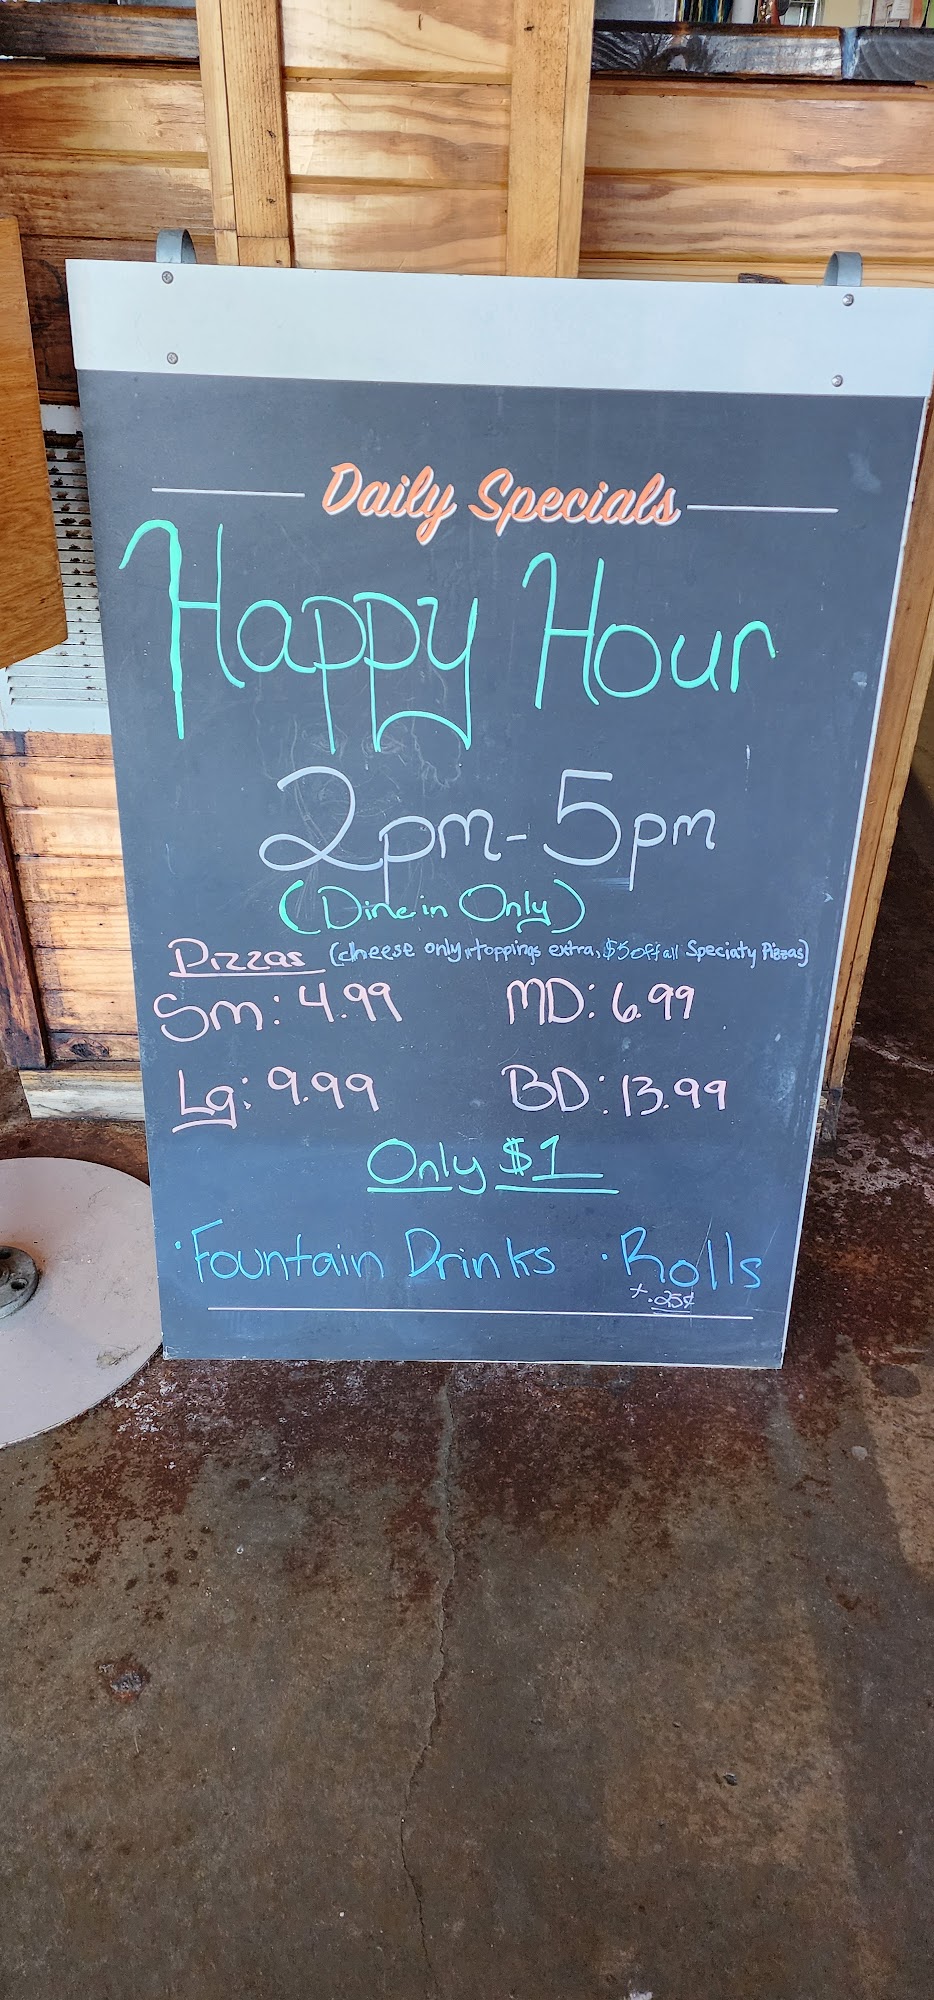 Daily Specials
Happy Hour
2pm-5pm
(Dine in Only)
Pizzas (cheese only, toppings extra, $5 off all Specialty Pizzas)
Sm: 4.99 MD: 6.99
Lg: 9.99 BD: 13.99
Only $1
·Fountain Drinks ·Rolls
+.25¢